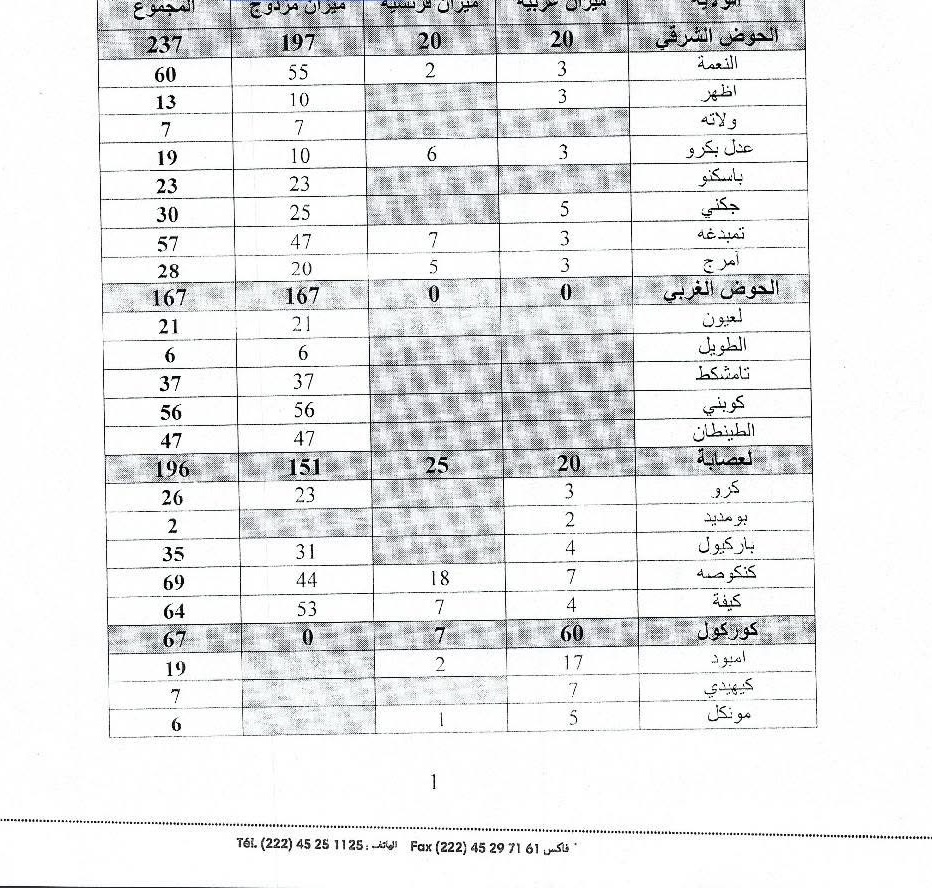 الولاية ميزان عربية ميزان فرنسية ميزان مزدوج المجموع
الحوض الشرقي 20 20 197 237
النعمة 3 2 55 60
اظهر 3 10 13
ولاته 7 7
عدل بكرو 3 6 10 19
باسكنو 23 23
جكني 5 25 30
تمبدغه 3 7 47 57
آمرج 3 5 20 28
الحوض الغربي 0 0 167 167
لعيون 21 21
الطويل 6 6
تامشكط 37 37
كوبني 56 56
الطينطان 47 47
لعصابة 20 25 151 196
كرو 3 23 26
بومديد 2 2
باركيول 4 31 35
كنكوصه 7 18 44 69
كيفة 4 7 53 64
كوركول 60 7 0 67
امبود 17 2 19
كيهيدي 7 7
مونكل 5 1 6
1
Tél. (222) 45 25 1125 : الهاتف Fax (222) 45 29 71 61 فاكس